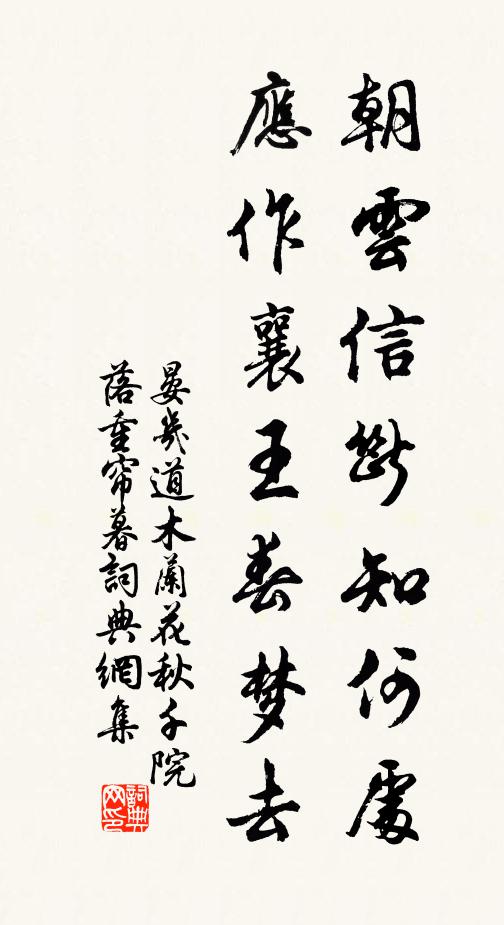 朝雲信斷知何處
應作襄王春夢去
晏幾道木蘭花秋千院
落重帘暮詞典網集
詞典
网印